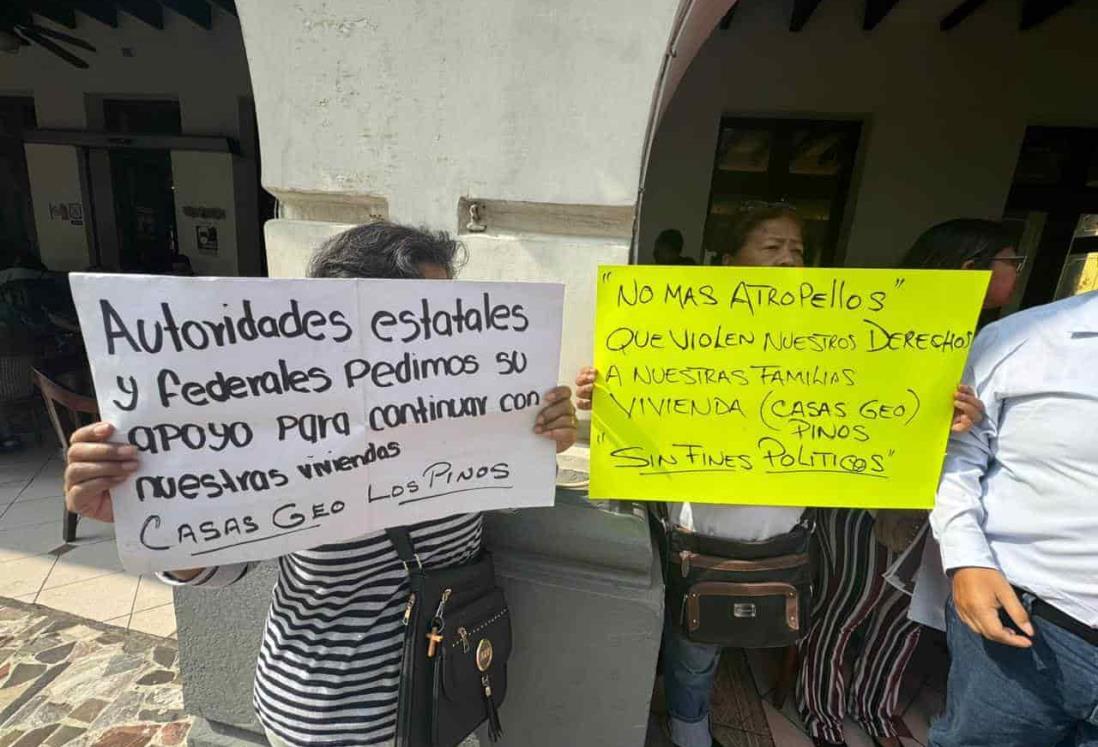 Autoridades estatales
y federales pedimos su
apoyo para continuar con
nuestras viviendas
CASAS GEO LOS PINOS
"NO MAS ATROPELLOS"
QUE VIOLEN NUESTROS DERECHOS
A NUESTRAS FAMILIAS
VIVIENDA (CASAS GEO)
PINOS
"SIN FINES POLITICOS"